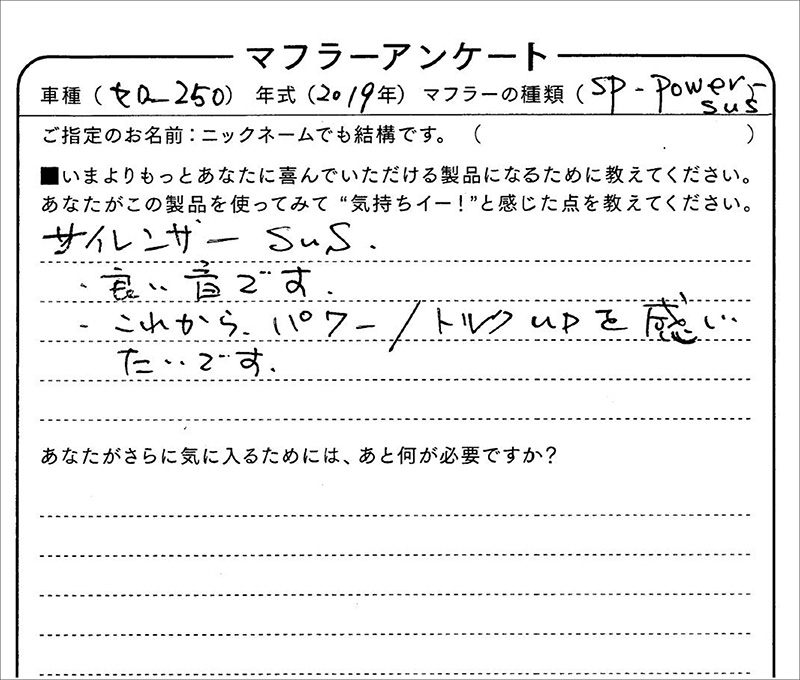 マフラーアンケート
車種 (セロー250) 年式 (2019年) マフラーの種類 (SP-Power SUS)
ご指定のお名前：ニックネームでも結構です。 ( )
■いまよりもっとあなたに喜んでいただける製品になるために教えてください。
あなたがこの製品を使ってみて “気持ちイー！”と感じた点を教えてください。
サイレンサー SUS.
・良い音です.
・これから、パワー/トルクUPを感じ
たいです.
あなたがさらに気に入るためには、あと何が必要ですか？